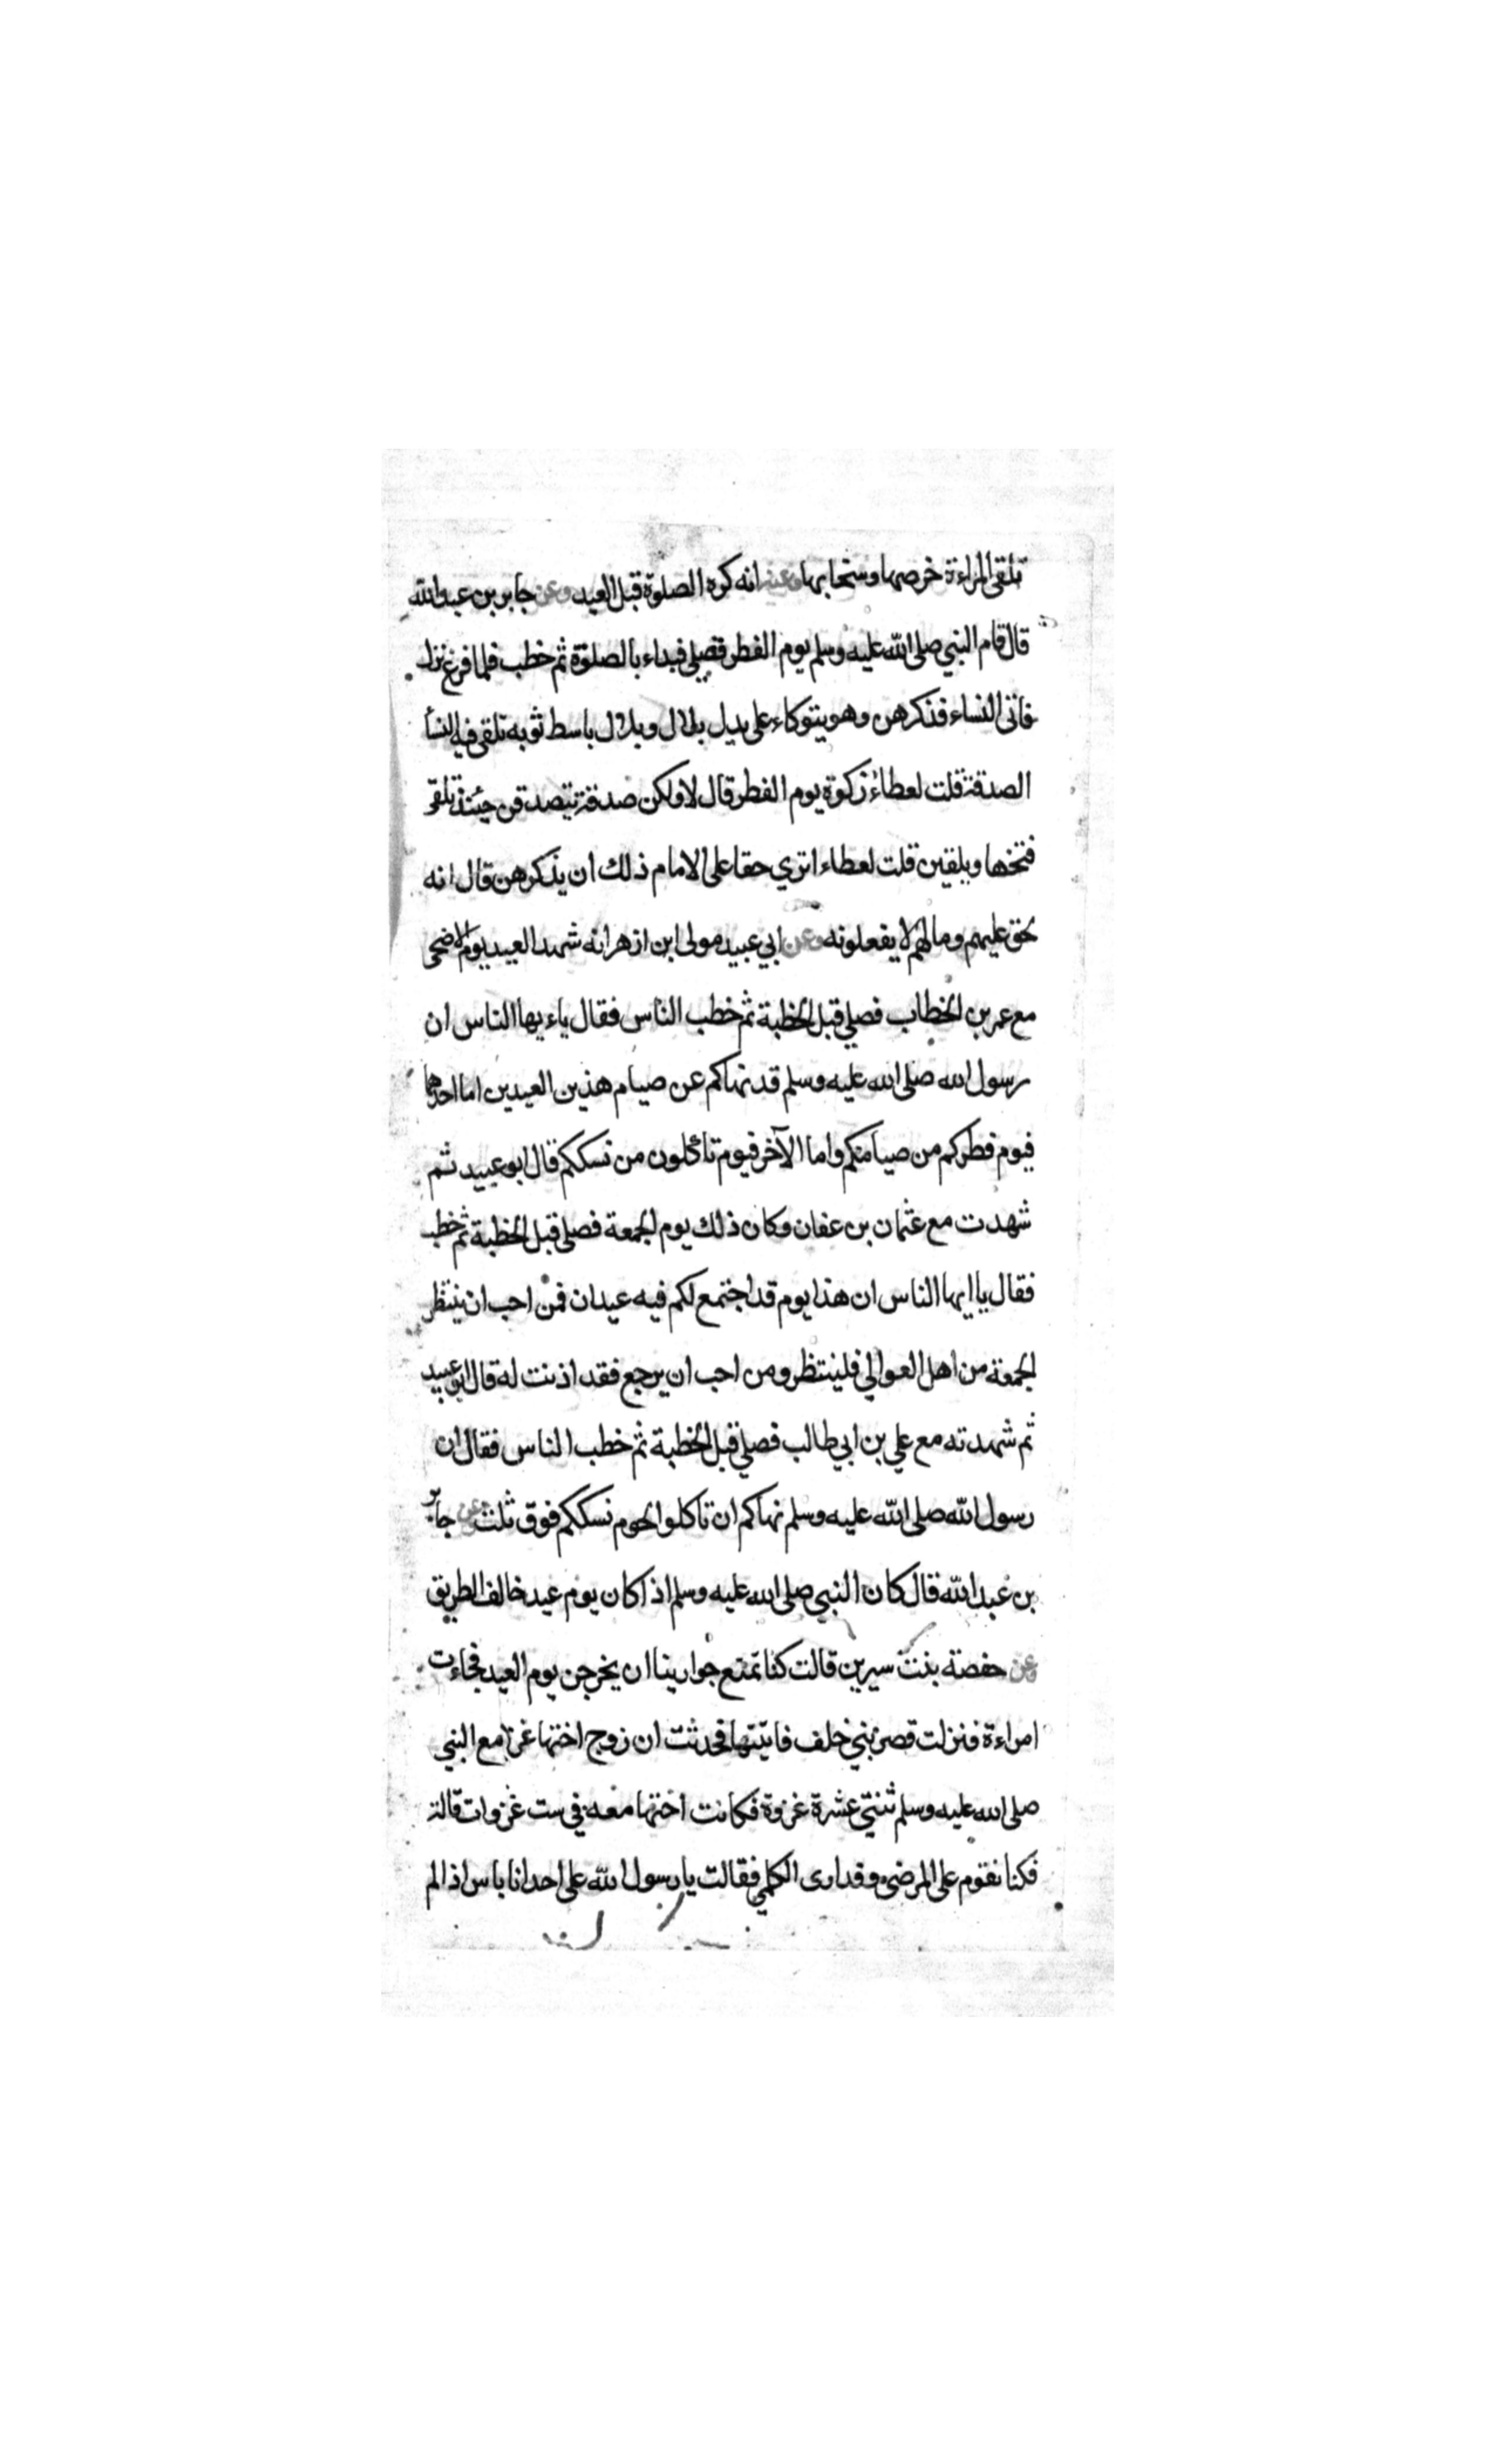 تلقى المراءة خرصها وسخابها وعنه انه كره الصلوة قبل العيد وعن جابر بن عبد الله
قال قام النبي صلى الله عليه وسلم يوم الفطر فصلى فبداء بالصلوة ثم خطب فلما فرغ نزل
فاتى النساء فذكرهن وهو يتوكاء على يد بلال وبلال باسط ثوبه تلقى فيه النسأ
الصدقة قلت لعطاء زكوة يوم الفطر قال لا ولكن صدقة يتصدقن حينئذ تلقى
فتخها ويلقين قلت لعطاء اترى حقا على الامام ذلك ان يذكرهن قال انه
لحق عليهم وما لهم لا يفعلونه وعن ابي عبيد مولى ابن ازهر انه شهد العيد يوم الاضحى
مع عمر بن الخطاب فصلى قبل الخطبة ثم خطب الناس فقال ياءيها الناس ان
رسول الله صلى الله عليه وسلم قد نهاكم عن صيام هذين العيدين اما احدهما
فيوم فطركم من صيامكم واما الآخر فيوم تأكلون من نسككم قال ابو عبيد ثم
شهدت مع عثمان بن عفان وكان ذلك يوم الجمعة فصلى قبل الخطبة ثم خطب
فقال يا ايها الناس ان هذا يوم قد اجتمع لكم فيه عيدان فمن احب ان ينتظر
الجمعة من اهل العوالي فلينتظر ومن احب ان يرجع فقد اذنت له قال ابو عبيد
ثم شهدته مع علي بن ابي طالب فصلى قبل الخطبة ثم خطب الناس فقال ان
رسول الله صلى الله عليه وسلم نهاكم ان تاكلوا لحوم نسككم فوق ثلث وعن جابر
بن عبد الله قال كان النبي صلى الله عليه وسلم اذا كان يوم عيد خالف الطريق
وعن حفصة بنت سيرين قالت كنا نمنع جوارينا ان يخرجن يوم العيد فجاءت
امراءة فنزلت قصر بني خلف فاتيتها فحدثت ان زوج اختها غزا مع النبي
صلى الله عليه وسلم ثنتي عشرة غزوة فكانت اختها معه في ست غزوات قالت
فكنا نقوم على المرضى وندارى الكلمى فقالت يا رسول الله على احدانا باس اذا لم